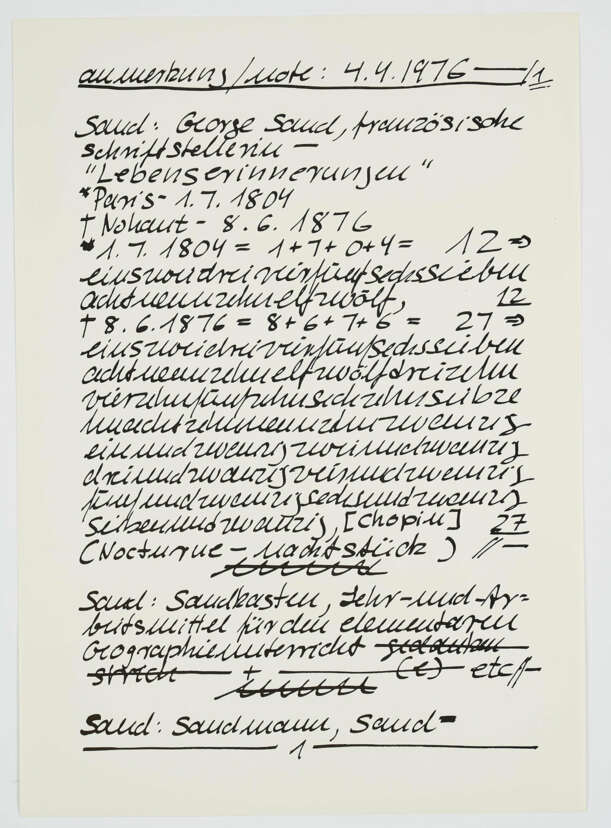 anmerkung/note: 4.4.1976 — /1
Sand: George Sand, französische
schriftstellerin —
"Lebenserinnerungen"
*Paris - 1.7.1804
† Nohant - 8.6.1876
* 1.7.1804 = 1+7+0+4 = 12 ⇒
einszweidreivierfünfsechssieben
achtneunzehnelfzwölf, 12
† 8.6.1876 = 8+6+7+6 = 27 ⇒
einszweidreivierfünfsechssieben
achtneunzehnelfzwölfdreizehn
vierzehnfünfzehnsechzehnsiebze
hnachtzehnneunzehnzwanzig
einundzwanzigzweiundzwanzig
dreiundzwanzigvierundzwanzig
fünfundzwanzigsechsundzwanzig
siebenundzwanzig, [Chopin] 27
(Nocturne - Nachtstück) //—
Sand: Sandkasten, Lehr-und-Ar=
beitsmittel für den elementaren
Geographieunterricht gedanken
strich — + — (e) — etc//—
Sand: Sandmann, Sand-
1